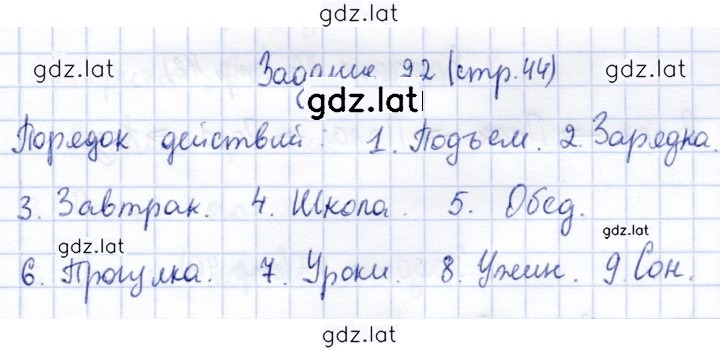 gdz.lat
gdz.lat Задание 92 (стр.44) gdz.lat
gdz.lat
Порядок действий: 1. Подъем. 2. Зарядка.
3. Завтрак. 4. Школа. 5. Обед.
gdz.lat gdz.lat
6. Прогулка. 7. Уроки. 8. Ужин. 9. Сон.
gdz.lat